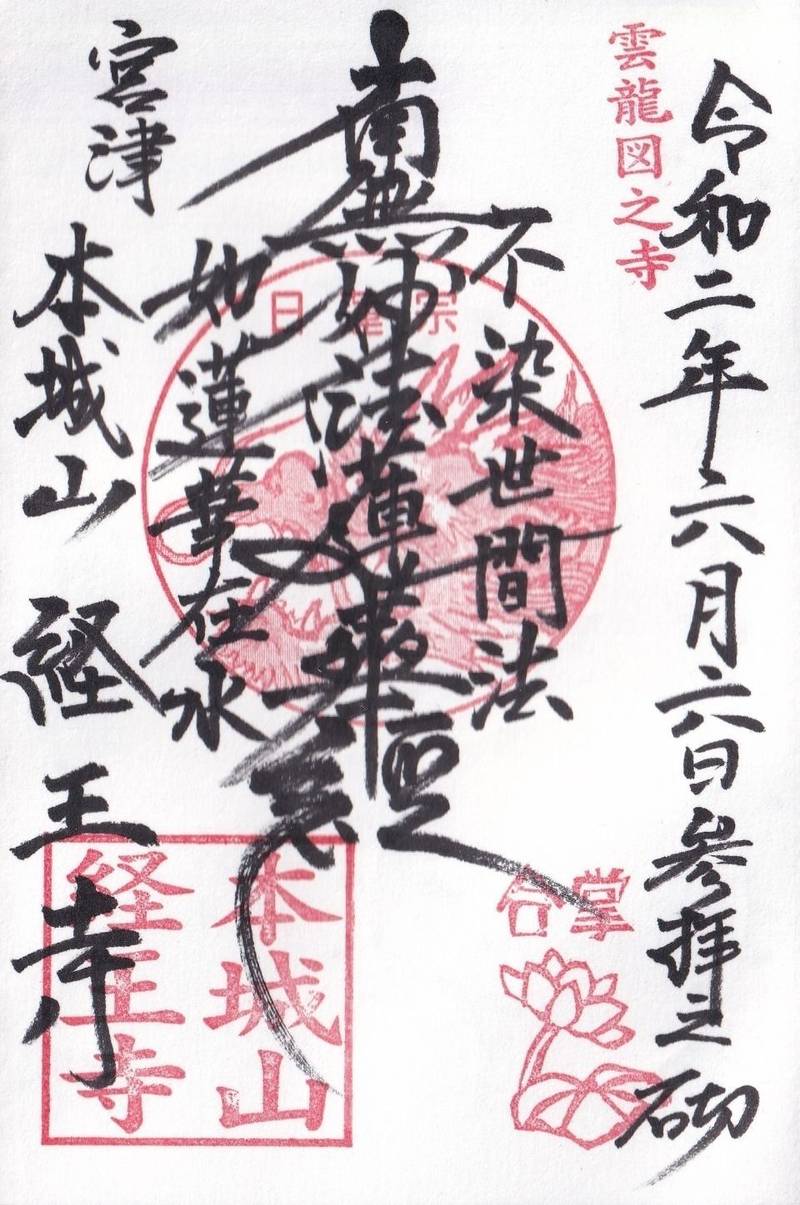 令和二年六月六日参拝之砌
雲龍図之寺
不染世間法
南無妙法蓮華経
如蓮華在水
宮津
本城山 経王寺
日蓮宗
合掌
本城山
経王寺